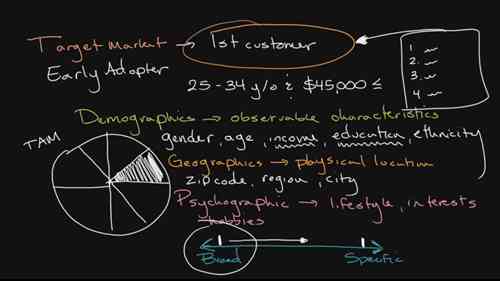 Target Market → 1st customer
Early Adopter
25-34 y/o & $45,000 ≤
1
2.
3.
4
Demographics → observable characteristics
gender, age, income, education, ethnicity
TAM
Geographics → physical location
zipcode, region, city
Psychographic → lifestyle, interests
hobbies
Broad
Specific